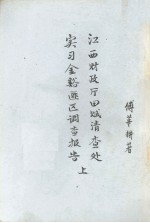 傅莘耕著
江西财政厅田赋清查处
实习金谿县区调查报告
上